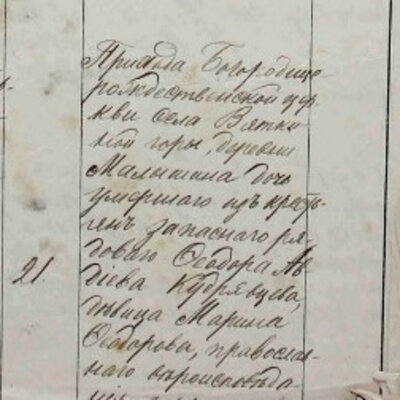 Прихода Богородице
рождественской цер
кви села Вятки
ной горы, деревни
Малышина дочь
умершаго изъ кресть
янъ запаснаго ря
доваго Ѳеодора Ав
дѣева Кудрявцева,
21. дѣвица Марина
Ѳеодорова, православ
наго вѣроисповѣда